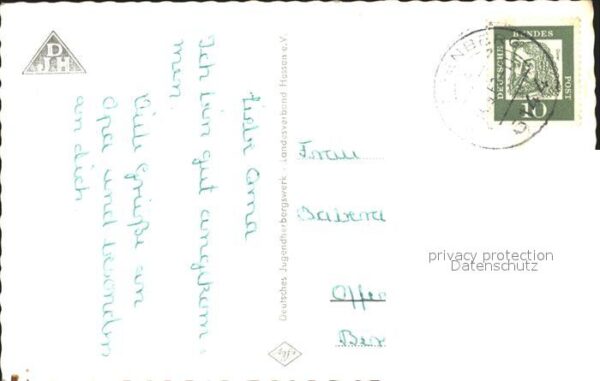 DJH
Liebe Oma
Ich bin gut angekom-
men.
Viele Grüße an
Opa und besonders
an dich.
Deutsches Jugendherbergswerk · Landesverband Hessen e.V.
Agfa
DEUTSCHE BUNDES POST
10
Frau
Offen
privacy protection
Datenschutz